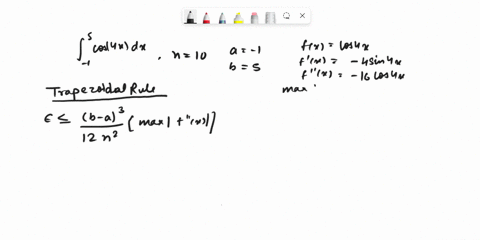 ∫₋₁⁵ cos(4x) dx , n = 10 a = -1 b = 5
f(x) = cos4x
f'(x) = -4sin4x
f''(x) = -16 cos4x
max
Trapezoidal Rule
ϵ ≤ (b-a)³ / 12 n² [ max | f''(x) | ]